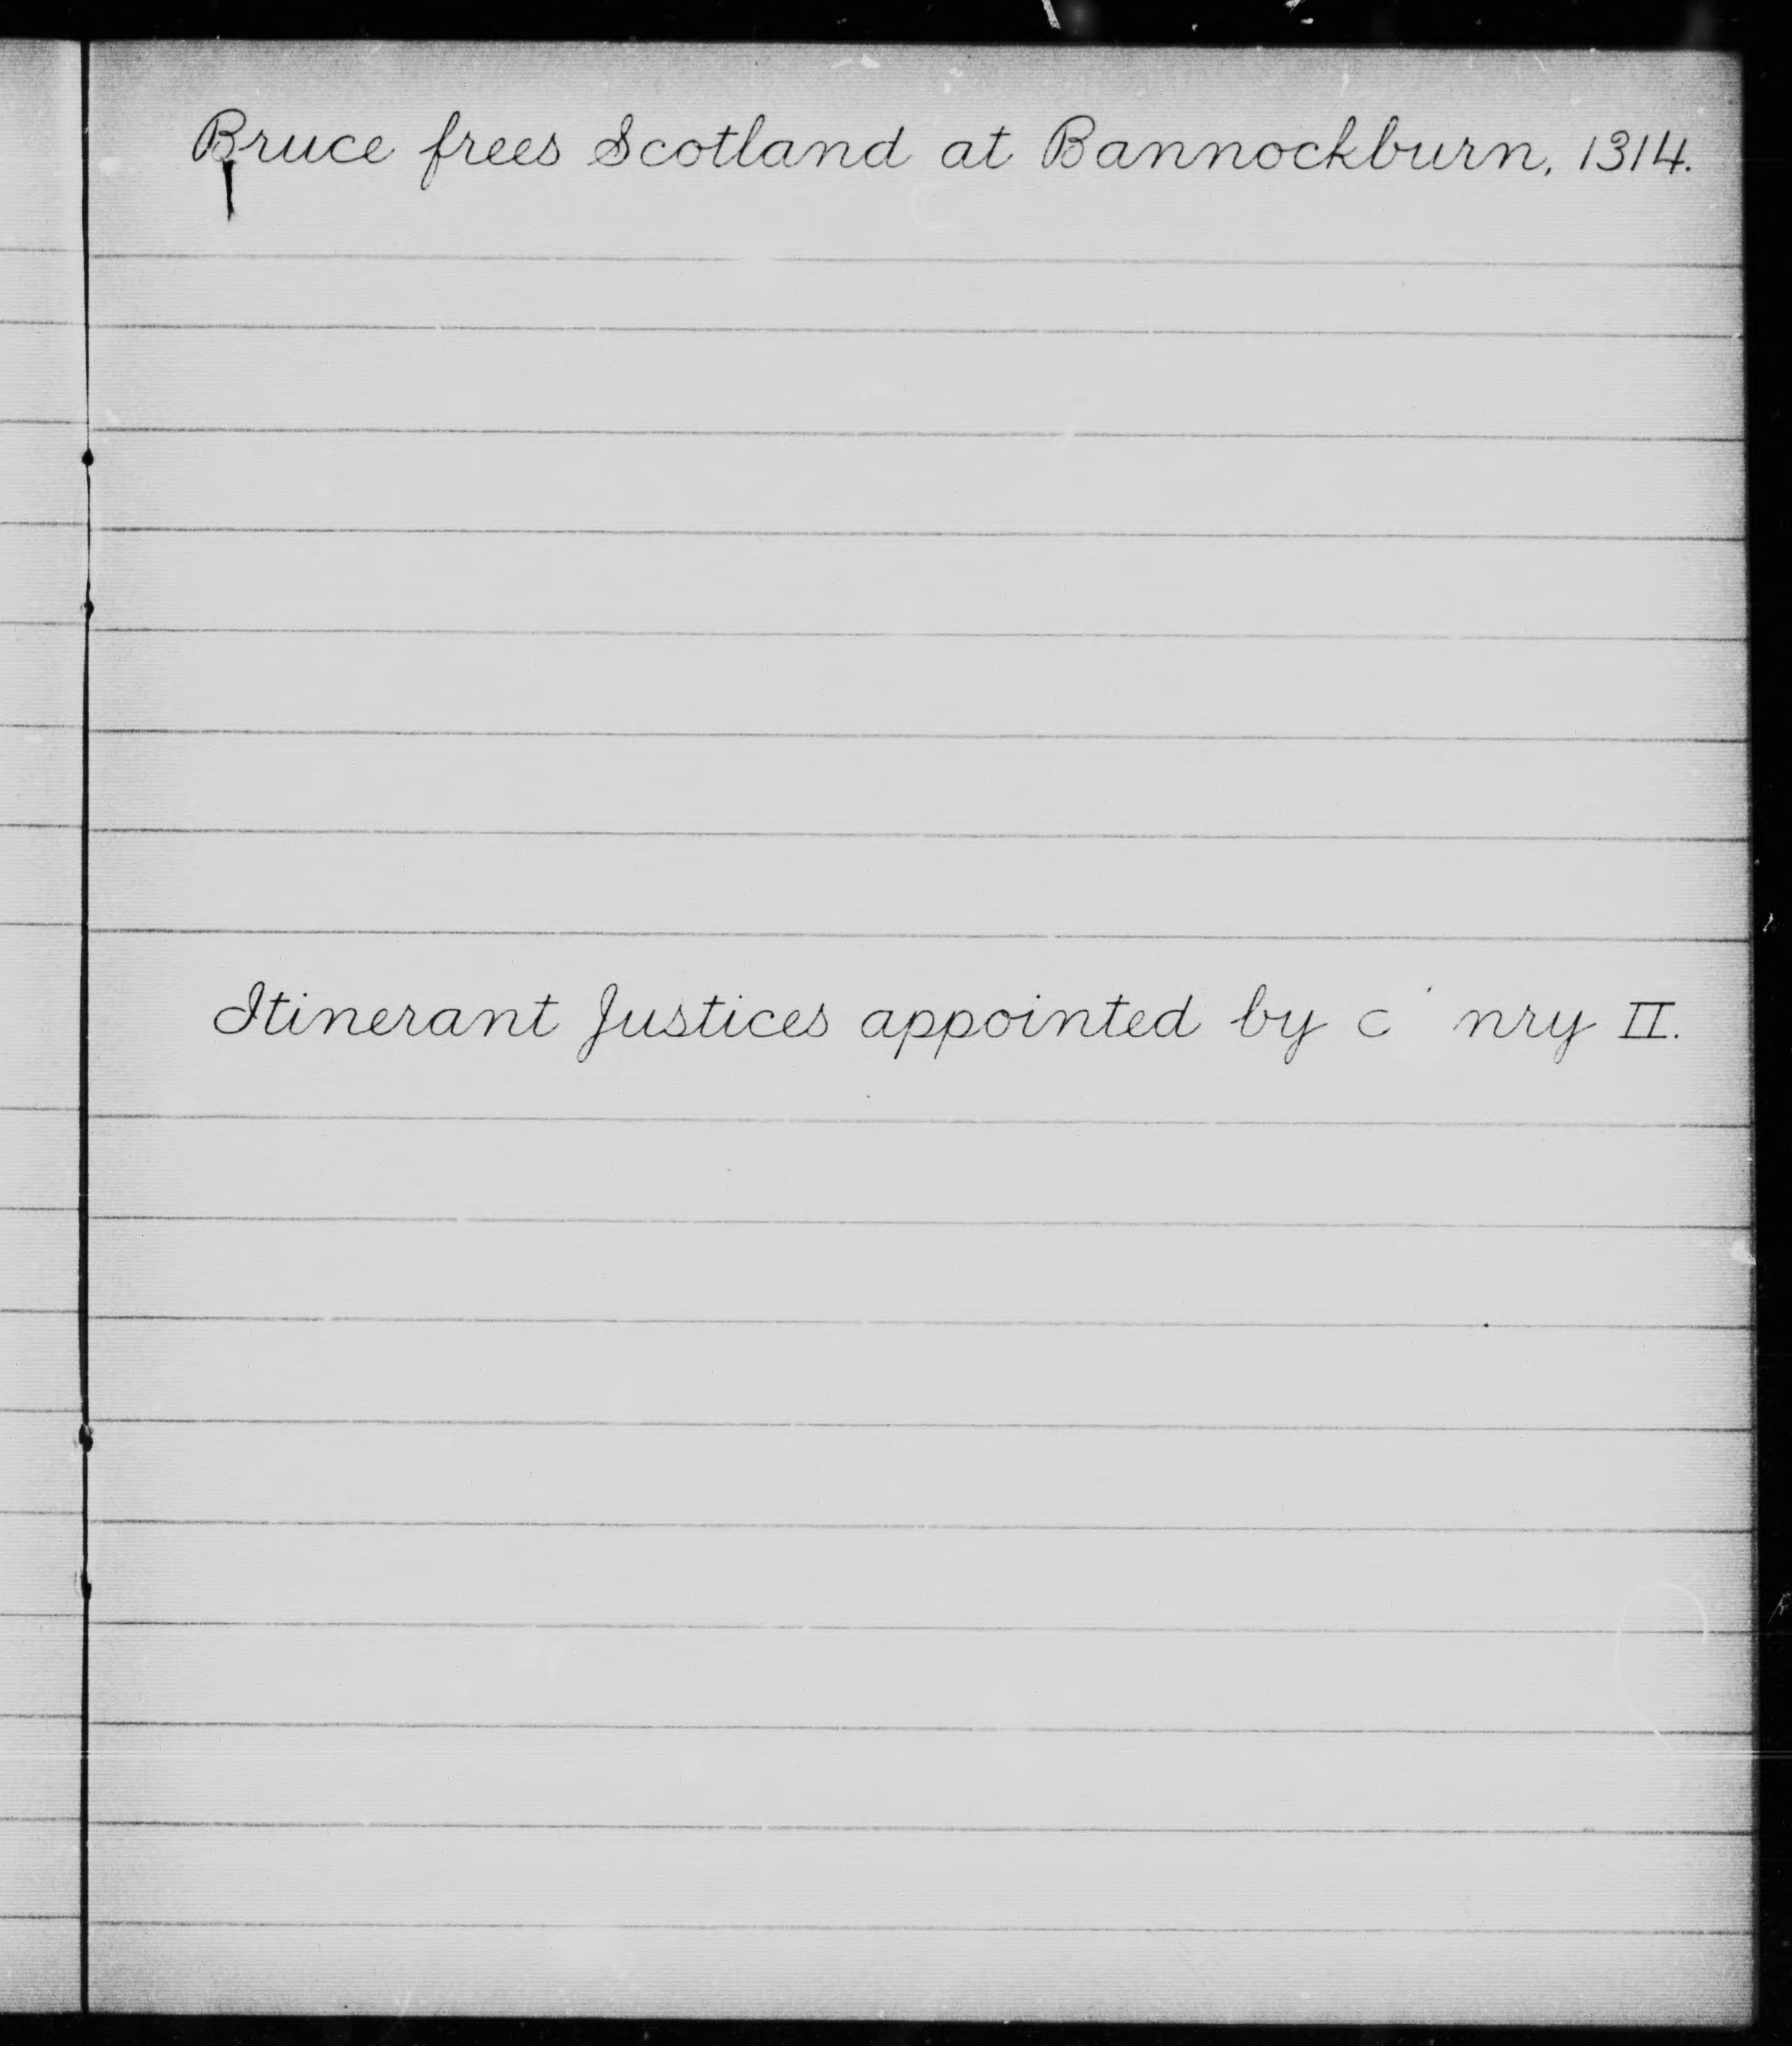 Bruce frees Scotland at Bannockburn, 1314.
Itinerant Justices appointed by nry II.